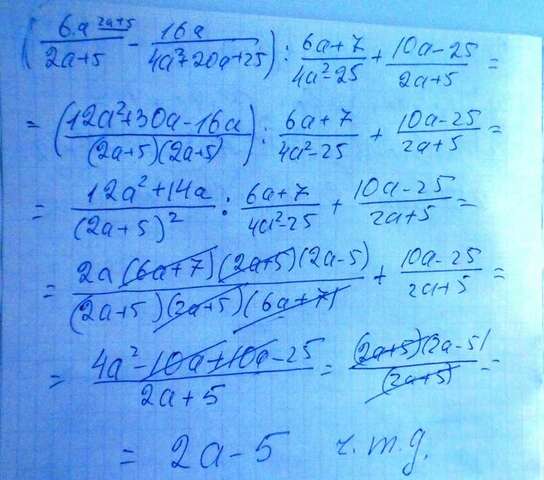 (6a^(2a+5)/(2a+5) - 16a/(4a²+20a+25)) : (6a+7)/(4a²-25) + (10a-25)/(2a+5) =
= ((12a²+30a-16a)/((2a+5)(2a+5))) : (6a+7)/(4a²-25) + (10a-25)/(2a+5) =
= (12a²+14a)/(2a+5)² : (6a+7)/(4a²-25) + (10a-25)/(2a+5) =
= (2a(6a+7)(2a+5)(2a-5))/((2a+5)(2a+5)(6a+7)) + (10a-25)/(2a+5) =
= (4a²-10a+10a-25)/(2a+5) = ((2a+5)(2a-5))/(2a+5) =
= 2a-5 ч.т.д.